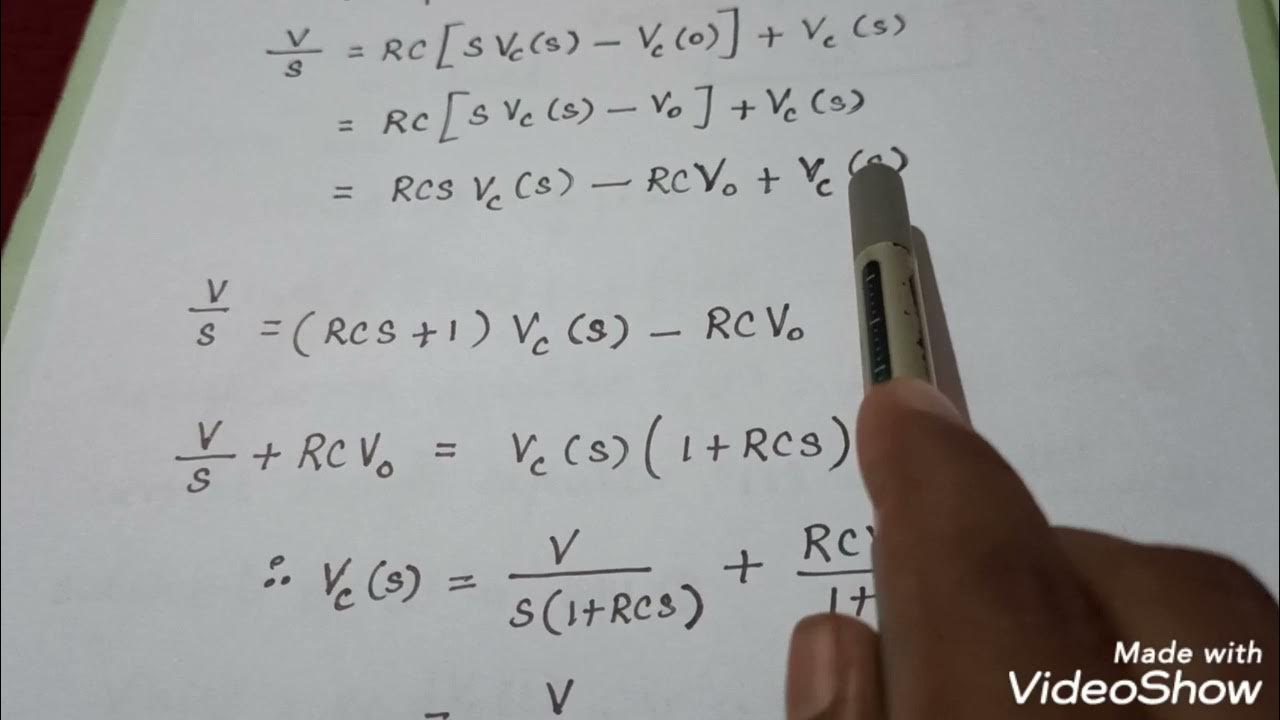 V/S = RC[S Vc(s) – Vc(0)] + Vc(s)
= RC[S Vc(s) – V₀] + Vc(s)
= RCS Vc(s) – RCV₀ + Vc(s)
V/S = (RCS + 1) Vc(s) – RCV₀
V/S + RCV₀ = Vc(s)(1 + RCS)
∴ Vc(s) = V/S(1+RCS) + RC
1+
= V
Made with
VideoShow